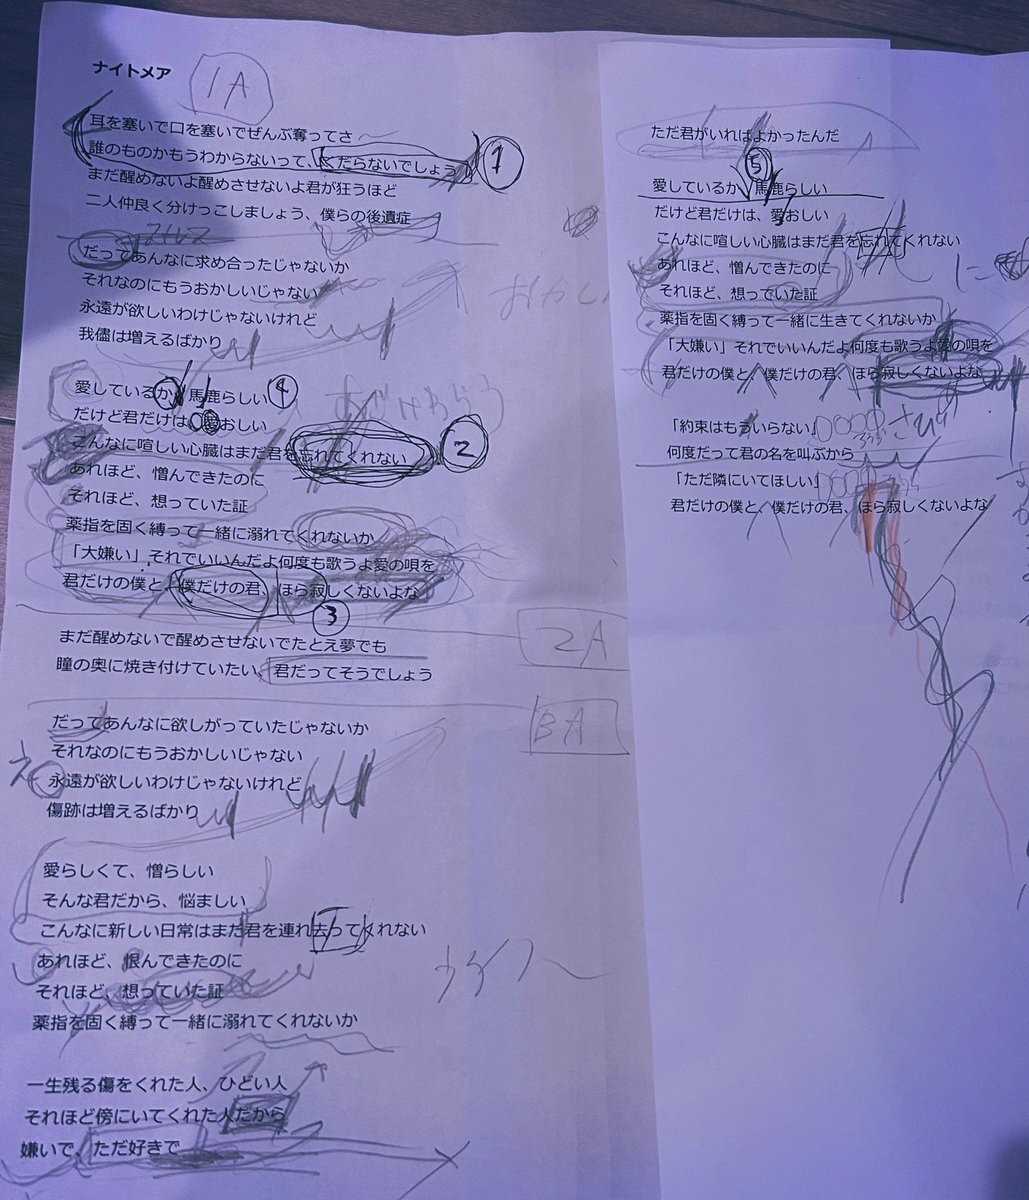 ナイトメア
1A
耳を塞いで口を塞いでぜんぶ奪ってさ
誰のものかもうわからないって、くだらないでしょう
1
まだ醒めないよ醒めさせないよ君が狂うほど
二人仲良く分けっこしましょう、僕らの後遺症
だってあんなに求め合ったじゃないか
それなのにもうおかしいじゃない
永遠が欲しいわけじゃないけれど
我儘は増えるばかり
愛しているか、馬鹿らしい
4
だけど君だけは、愛おしい
こんなに喧しい心臓はまだ君を忘れてくれない
2
あれほど、憎んできたのに
それほど、想っていた証
薬指を固く縛って一緒に溺れてくれないか
「大嫌い」それでいいんだよ何度も歌うよ愛の唄を
君だけの僕と、僕だけの君、ほら寂しくないよな
3
2A
まだ醒めないで醒めさせないでたとえ夢でも
瞳の奥に焼き付けていたい、君だってそうでしょう
BA
だってあんなに欲しがっていたじゃないか
それなのにもうおかしいじゃない
え
永遠が欲しいわけじゃないけれど
傷跡は増えるばかり
愛らしくて、憎らしい
そんな君だから、悩ましい
こんなに新しい日常はまだ君を連れ去ってくれない
あれほど、恨んできたのに
それほど、想っていた証
薬指を固く縛って一緒に溺れてくれないか
一生残る傷をくれた人、ひどい人
それほど傍にいてくれた人だから
嫌いで、ただ好きで
ただ君がいればよかったんだ
5
愛しているか、馬鹿らしい
だけど君だけは、愛おしい
こんなに喧しい心臓はまだ君を忘れてくれない
あれほど、憎んできたのに
それほど、想っていた証
薬指を固く縛って一緒に生きてくれないか
「大嫌い」それでいいんだよ何度も歌うよ愛の唄を
君だけの僕と、僕だけの君、ほら寂しくないよな
「約束はもういらない」
何度だって君の名を叫ぶから
「ただ隣にいてほしい」
君だけの僕と、僕だけの君、ほら寂しくないよな